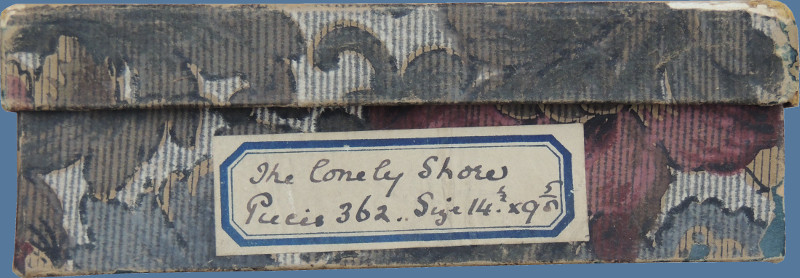 The lonely Shore
Pieces 362.. Size 14 x 9